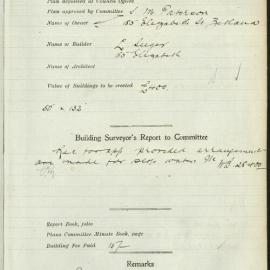 Plan deposited at Council Office
Plan approved by Committee
Name of Owner S M Paterson
65 Elizabeth St. Redland
Name of Builder L Suger
65 Elizabeth
Name of Architect
Value of Buildings to be erected £400.
50 x 132
Building Surveyor's Report to Committee
Rec for app provided arrangements
are made for stop water
Report Book, folio
Plans Committee Minute Book, page
Building Fee Paid 15/-
Remarks